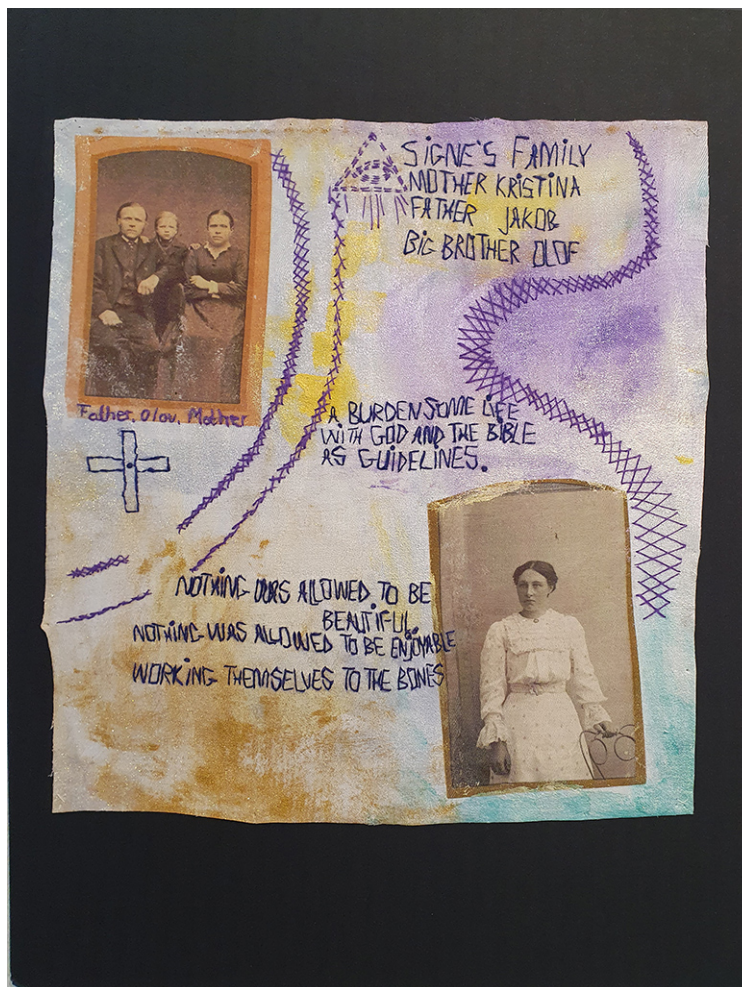 SIGNE'S FAMILY
MOTHER KRISTINA
FATHER JAKOB
BIG BROTHER OLOF
Father, Olov, Mother
A BURDENSOME LIFE
WITH GOD AND THE BIBLE
AS GUIDELINES.
NOTHING WAS ALLOWED TO BE
BEAUTIFUL.
NOTHING WAS ALLOWED TO BE ENJOYABLE
WORKING THEMSELVES TO THE BONES